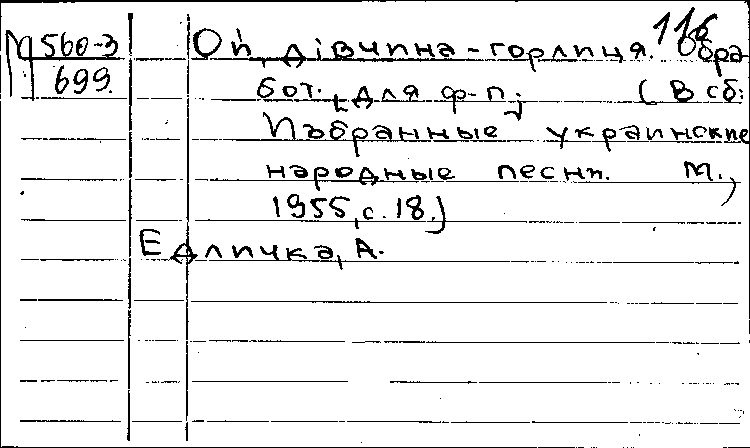 116
М 560-3 Ой, дівчина-горлиця. Обра
699. бот. [для ф-п.] (В сб:
Избранные украинские
народные песни. М.,
1955, с. 18.)
Едличка, А.